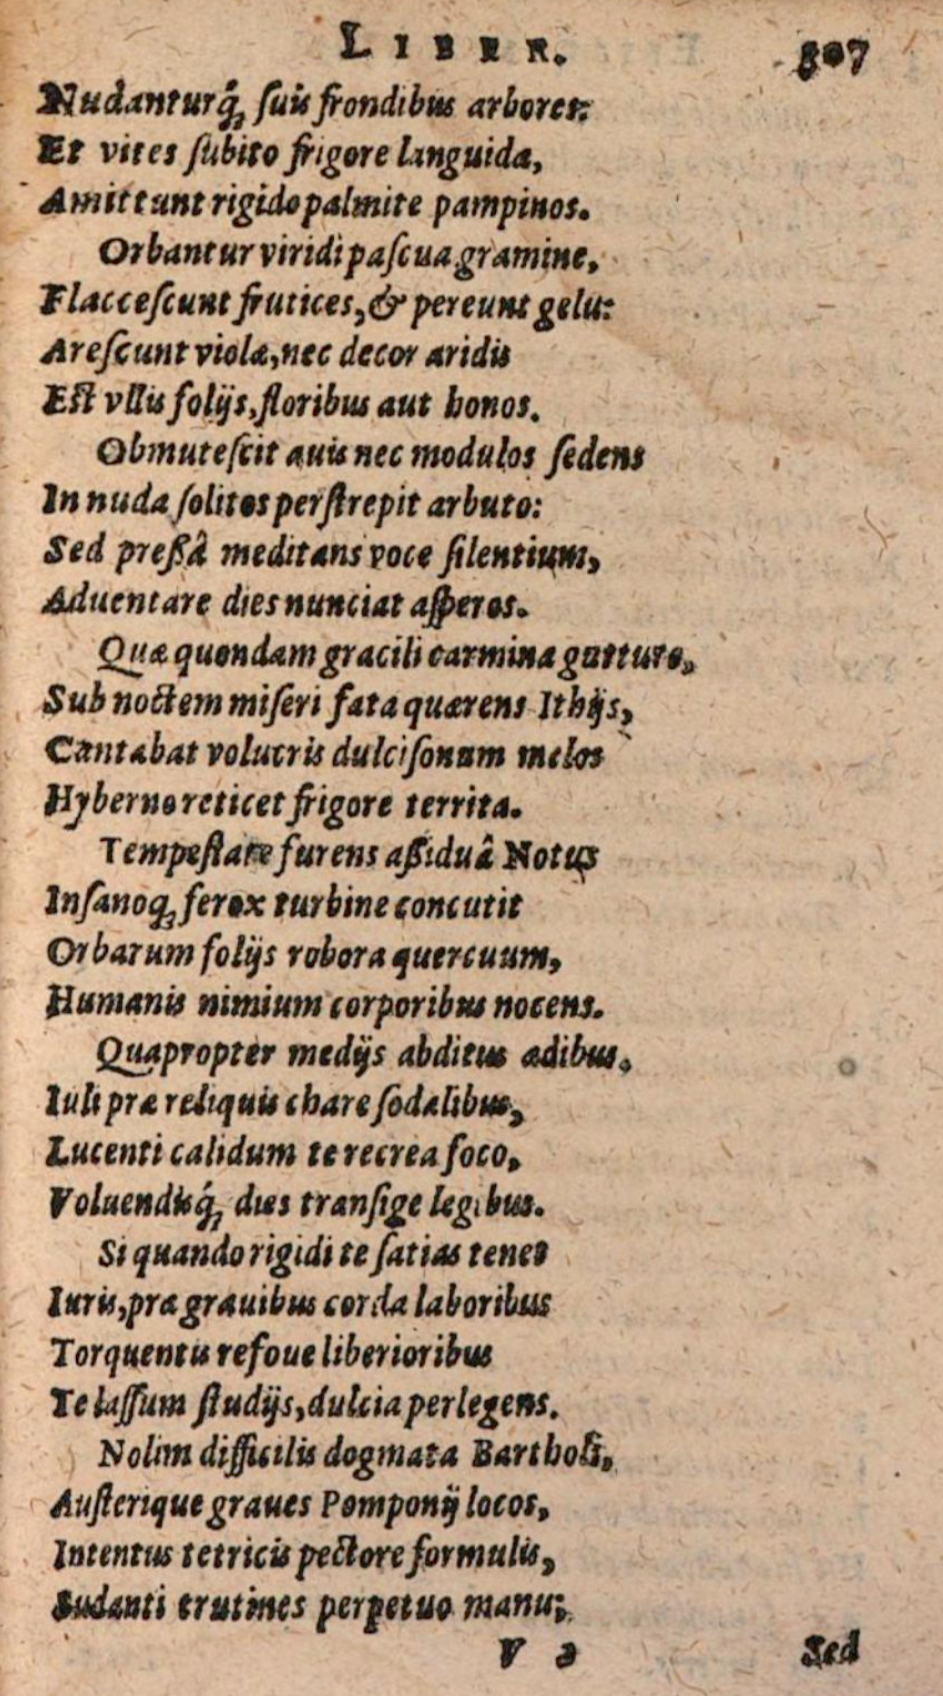 LIBER. 307
Nudanturq́; ſuis frondibus arbores:
Et vites ſubito frigore languidæ,
Amittunt rigido palmite pampinos.
Orbantur viridi paſcua gramine,
Flacceſcunt frutices, & pereunt gelu:
Areſcunt violæ, nec decor aridis
Eſt vllis folijs, floribus aut honos.
Obmuteſcit auis nec modulos ſedens
In nuda ſolitos perſtrepit arbuto:
Sed preßâ meditans voce ſilentium,
Aduentare dies nunciat aſperos.
Quæ quondam gracili carmina gutture,
Sub noctem miſeri fata quærens Ithijs,
Cantabat volucris dulciſonum melos
Hyberno reticet frigore territa.
Tempeſtate furens aßiduâ Notus
Inſanoq; ferox turbine concutit
Orbarum folijs robora quercuum,
Humanis nimium corporibus nocens.
Quapropter medijs abditus ædibus,
Iuli præ reliquis chare ſodalibus,
Lucenti calidum te recrea foco,
Voluendisq́; dies tranſige legibus.
Si quando rigidi te ſatias tenet
Iuris, præ grauibus corda laboribus
Torquentis refoue liberioribus
Te laſſum ſtudijs, dulcia perlegens.
Nolim difficilis dogmata Bartholi,
Auſterique graues Pomponij locos,
Intentus tetricis pectore formulis,
Sudanti trutines perpetuo manu;
V 2 Sed